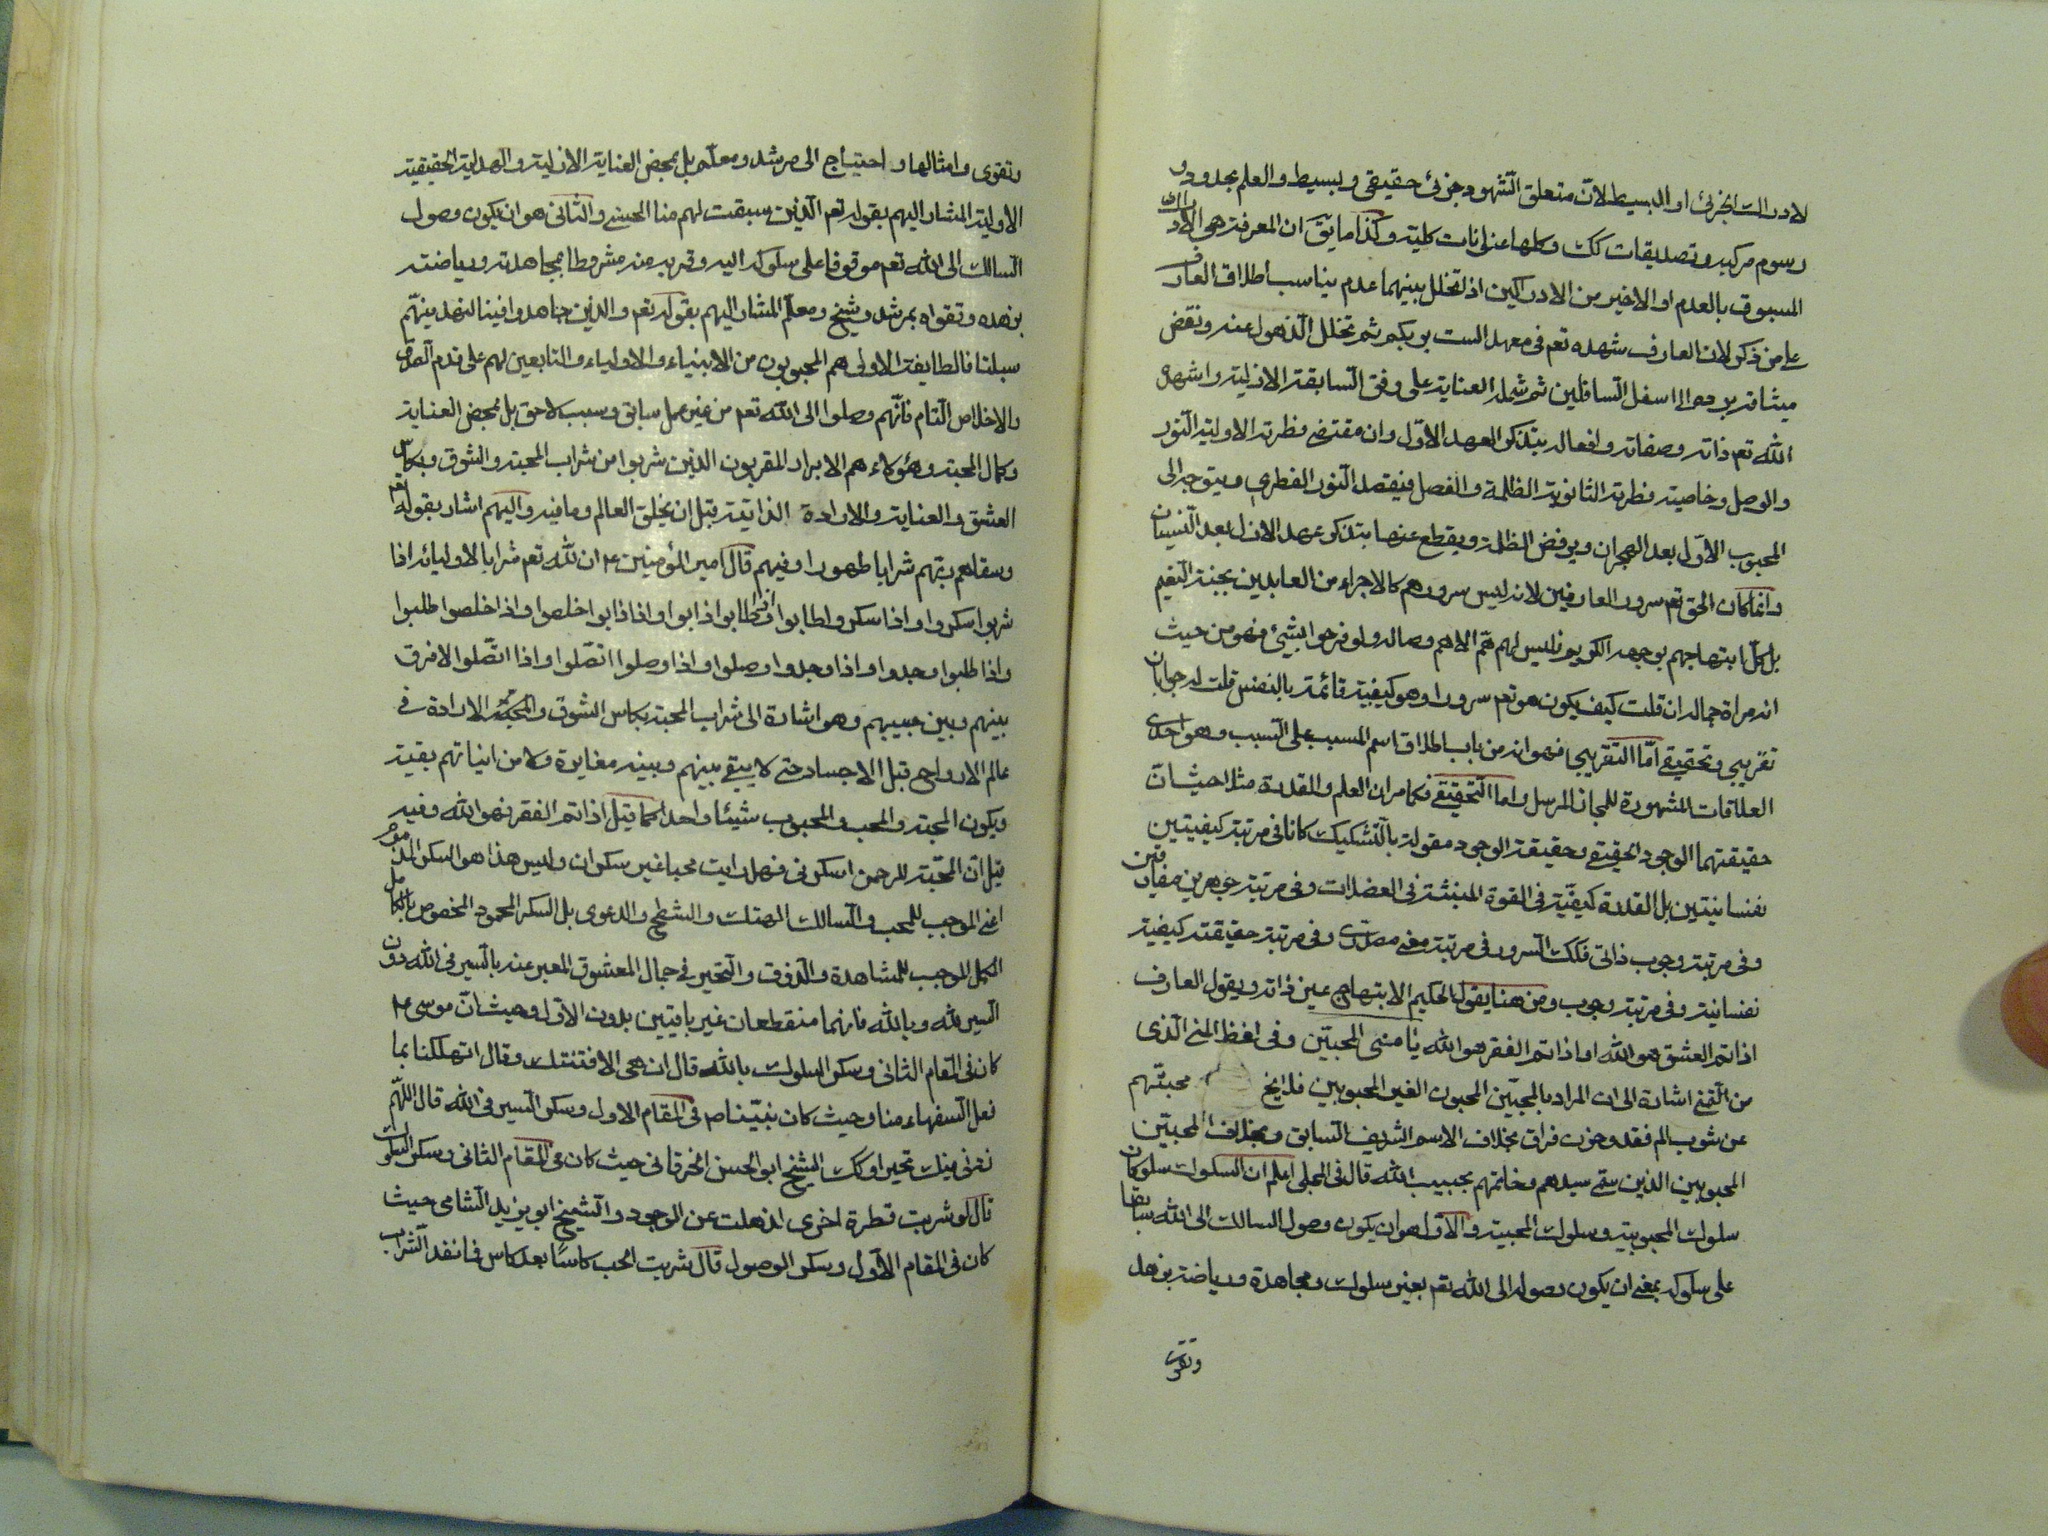 لادراك الجزئى او البسيط لانّ متعلق الشهود جزئى حقيقى وبسيط والعلم بحدود و
رسوم مركبه وتصديقات كك وكلها عنوانات كلية وكذا ما يقّ ان المعرفة هى الادراك
المسبوق بالعدم او الاخير من الادراكين اذا تخلل بينهما عدم يناسب اطلاق العارف
على من ذكر لان العارف شهده تعم فى معهد الست بربكم ثم تخلل الذهول عنه ونقض
ميثاقه برده الى اسفل السافلين ثم شمله العناية على وفق السابقة الازلية واشهده
الله تعم ذاته وصفاته وافعاله بتذكر العهد الاوّل وان مقتضى فطرته الاولية النور
والوصل وخاصية فطرته الثانوية الظلمة والفصل فيقصد النور الفطرى ويتوجه الى
المحبوب الاوّل بعد الهجران ويرفض الظلمة ويقطع عنها بتذكر عهد الازل بعد النسيان
وانما كان الحق تعم سرور العارفين لانه ليس سرورهم كالاجراء من العابدين بجنة النعيم
بل كلّ ابتهاجهم بوجهه الكريم وليس لهم همّ الا هم وصاله ولو فرحوا بشئ فهو من حيث
انه مراة جماله ان قلت كيف يكون هو تعم سرورا وهو كيفية قائمة بالنفس قلت له جوابان
تقريبى وتحقيقى امّا التقريبى فهو انه من باب اطلاق اسم المسبب على السبب وهو احدى
العلاقات المشهورة للمجاز المرسل واما التحقيقى فكما مر ان العلم والقدرة مثلا حيث انّ
حقيقتهما الوجود الحقيقى وحقيقة الوجود مقولة بالتشكيك كانا فى مرتبة كيفيتين
نفسانيتين بل القدرة كيفيّة فى القوة المنبثة فى العضلات وفى مرتبة جوهرين مفارقين
وفى مرتبة وجوب ذاتى فكك السرور فى مرتبة معنى مصدرى وفى مرتبة حقيقته كيفية
نفسانية وفى مرتبة وجوب ومن هنا يقول الحكيم الابتهاج عين ذاته ويقول العارف
اذا تم العشق هو الله او اذا تم الفقر هو الله يا منى المحبّين وفى لفظ المنى الذى
من التمنى اشارة الى ان المراد بالمحبّين المحبون الغير المحبوبين فلا يخ محبتهم
عن شوب الم فقد وحزن فراق بخلاف الاسم الشريف السابق وبخلاف المحبّين
المحبوبين الذين سمّى سيدهم وخاتمهم بحبيب الله قال فى المجلى اعلم ان السلوك سلوكان
سلوك المحبوبية وسلوك المحبية والاوّل هو ان يكون وصول السالك الى الله سابقا
على سلوكه بمعنى ان يكون وصوله الى الله تعم بغير سلوك ومجاهدة ورياضة بزهد
وتقوى
وتقوى وامثالها و احتياج الى مرشد ومعلّم بل بمحض العناية الازلية والهداية الحقيقية
الاولية المشار اليهم بقوله تعم الذين سبقت لهم منا الحسنى والثانى هو ان يكون وصول
السالك الى الله تعم موقوفا على سلوكه اليه وقربه منه مشروطا بمجاهدة ورياضته
بزهده وتقواه بمرشد وشيخ ومعلّم المشار اليهم بقوله تعم والذين جاهدوا فينا لنهدينّهم
سبلنا فالطايفة الاولى هم المحبوبون من الانبياء والاولياء والتابعين لهم على قدم الصدق
والاخلاص التام فانّهم وصلوا الى الله تعم من غير عمل سابق وسبب لاحق بل بمحض العناية
وكمال المحبة وهؤلاء هم الابرار المقربون الذين شربوا من شراب المحبة والشوق وبكاس
العشق والعناية والارادة الذاتية قبل ان يخلق العالم وما فيه واليهم اشار بقوله تعم
وسقاهم ربّهم شرابا طهورا وفيهم قال امير المؤمنين ع ان لله تعم شرابا لاوليائه اذا
شربوا سكروا واذا سكروا طابوا واذا طابوا ذابوا واذا ذابوا اخلصوا واذا اخلصوا طلبوا
واذا طلبوا وجدوا واذا وجدوا وصلوا واذا وصلوا اتصّلوا واذا اتصّلوا لا فرق
بينهم وبين حبيبهم وهو اشارة الى شراب المحبة بكاس الشوق والارادة فى
عالم الارواح قبل الاجساد حتى لا يبقى بينهم وبينه مغايرة ولا من انياتهم بقية
ويكون المحبة والمحب والمحبوب شيئا واحدا كما قيل اذا تم الفقر فهو الله وفيه
قيل انّ المحبّة للرحمن اسكرنى فهل رايت محبا غير سكران وليس هذا هو السكر المذموم
اعنى الموجب للمحب والسالك الهتك والشطح والدعوى بل السكر المحمود المخصوص بالكامل
المكمل الموجب للمشاهدة والذوق والتحير فى جمال المعشوق المعبر عنه بالسير فى الله دون
السير لله وبالله فانهما منقطعان غير باقيين بدون الاوّل وحيث انّ موسى ع
كان فى المقام الثانى وسكر السلوك بالله قال ان هى الا فتنتك وقال اتهلكنا بما
فعل السفهاء منا وحيث كان نبيّنا ص فى المقام الاول وسكر السير فى الله قال اللهّم
زدنى فيك تحيرا وكك الشيخ ابو الحسن الخرقانى حيث كان فى المقام الثانى وسكر السلوك
قال لو شربت قطرة اخرى لذهلت عن الوجود والشيخ ابو يزيد الشامى حيث
كان فى المقام الاوّل وسكر الوصول قال شربت الحب كاسًا بعد كاس فما نفد الشراب